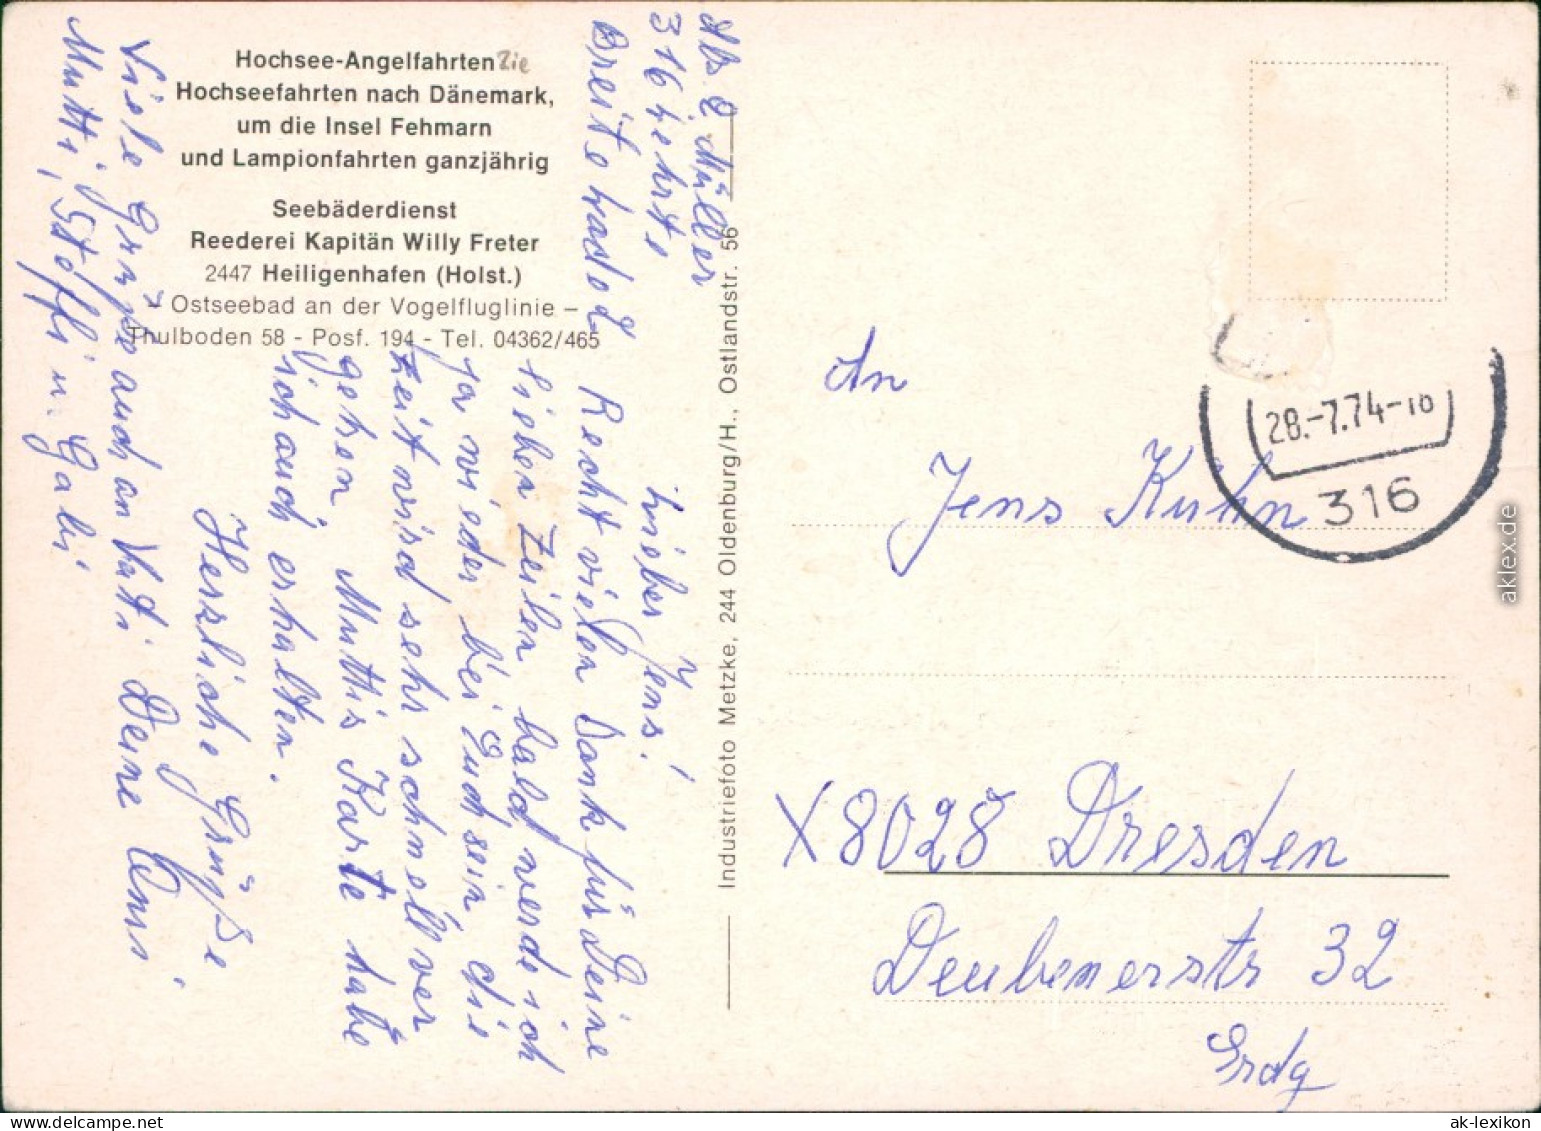 Hochsee-Angelfahrten Zie
Hochseefahrten nach Dänemark,
um die Insel Fehmarn
und Lampionfahrten ganzjährig
Seebäderdienst
Reederei Kapitän Willy Freter
2447 Heiligenhafen (Holst.)
– Ostseebad an der Vogelfluglinie –
Thulboden 58 - Posf. 194 - Tel. 04362/465
Müller
316
Lieber Jens!
Recht vielen Dank für Deine
lieben Zeilen bald werde ich
ja wieder bei Euch sein die
Zeit wird sehr schnell ver
gehen. Muttis Karte habe
ich auch erhalten.
Herzliche Grüße
Viele Grüße auch an Vati Deine Omi
Mutti, Stoffi u. Gabi
Industriefoto Metzke, 244 Oldenburg/H., Ostlandstr. 56
28.-7.74-18
316
An
Jens Kuhn
X8028 Dresden
Deubenerstr 32
Erdg
aklex.de
ak-lexikon